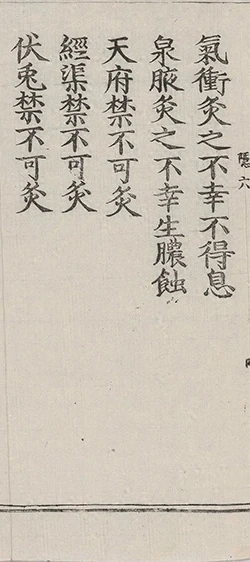 氣衝灸之不幸不得息
泉腋灸之不幸生膿蝕
天府禁不可灸
經渠禁不可灸
伏兎禁不可灸